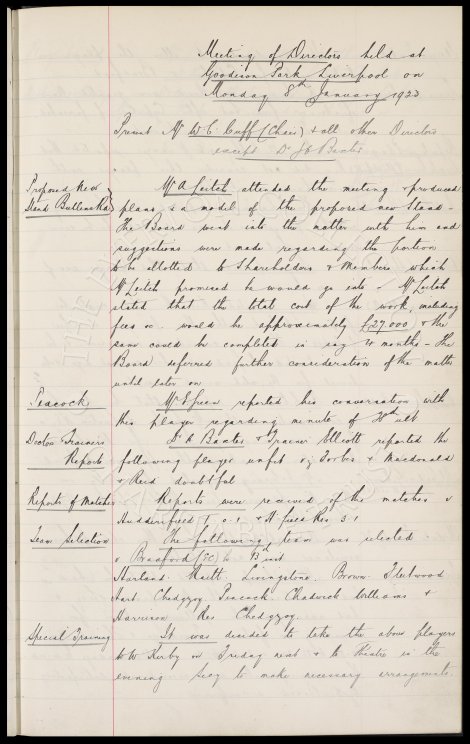 Meeting of Directors held at
Goodison Park Liverpool on
Monday 8th January 1923
Present Mr W C Cuff (Chair) & all other Directors
except Dr J E Baxter
Proposed New
Stand Bullens Rd
Mr A Leitch attended the meeting & produced
plans & a model of the proposed new Stand -
The Board went into the matter with him and
suggestions were made regarding the portion
to be allotted to Shareholders & Members which
Mr Leitch promised he would go into - Mr Leitch
stated that the total cost of the work, including
fees &c. would be approximately £27.000 & the
same could be completed in say 4 months - The
Board deferred further consideration of the matter
until later on
Peacock
Mr E Green reported his conversation with
this player regarding minute of 30th ult
Doctor & Trainers
Reports
Dr Baxter & Trainer Elliott reported the
following players unfit viz Forbes & Macdonald
& Reid doubtful
Reports of Matches
Reports were received of the matches v
Huddersfield T. 0.1 & Hfield Res 3.1
Team Selection
The following team was selected
v Bradford (EC) h 13th inst
Harland. Raitt. Livingstone. Brown. Fleetwood
Hart. Chedgzoy. Peacock. Chadwick Williams &
Harrison Res Chedgzoy.
Special Training
It was decided to take the above players
to W Kirby on Friday next & to theatre in the
evening Secy to make necessary arrangements.